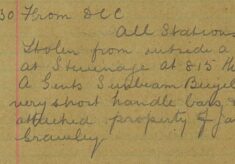 30 From DCC
All Stations
Stolen from outside a
at Stevenage at 815
A Gents Sunbeam Bicycle
very short handle bars
attached property of
Crawley